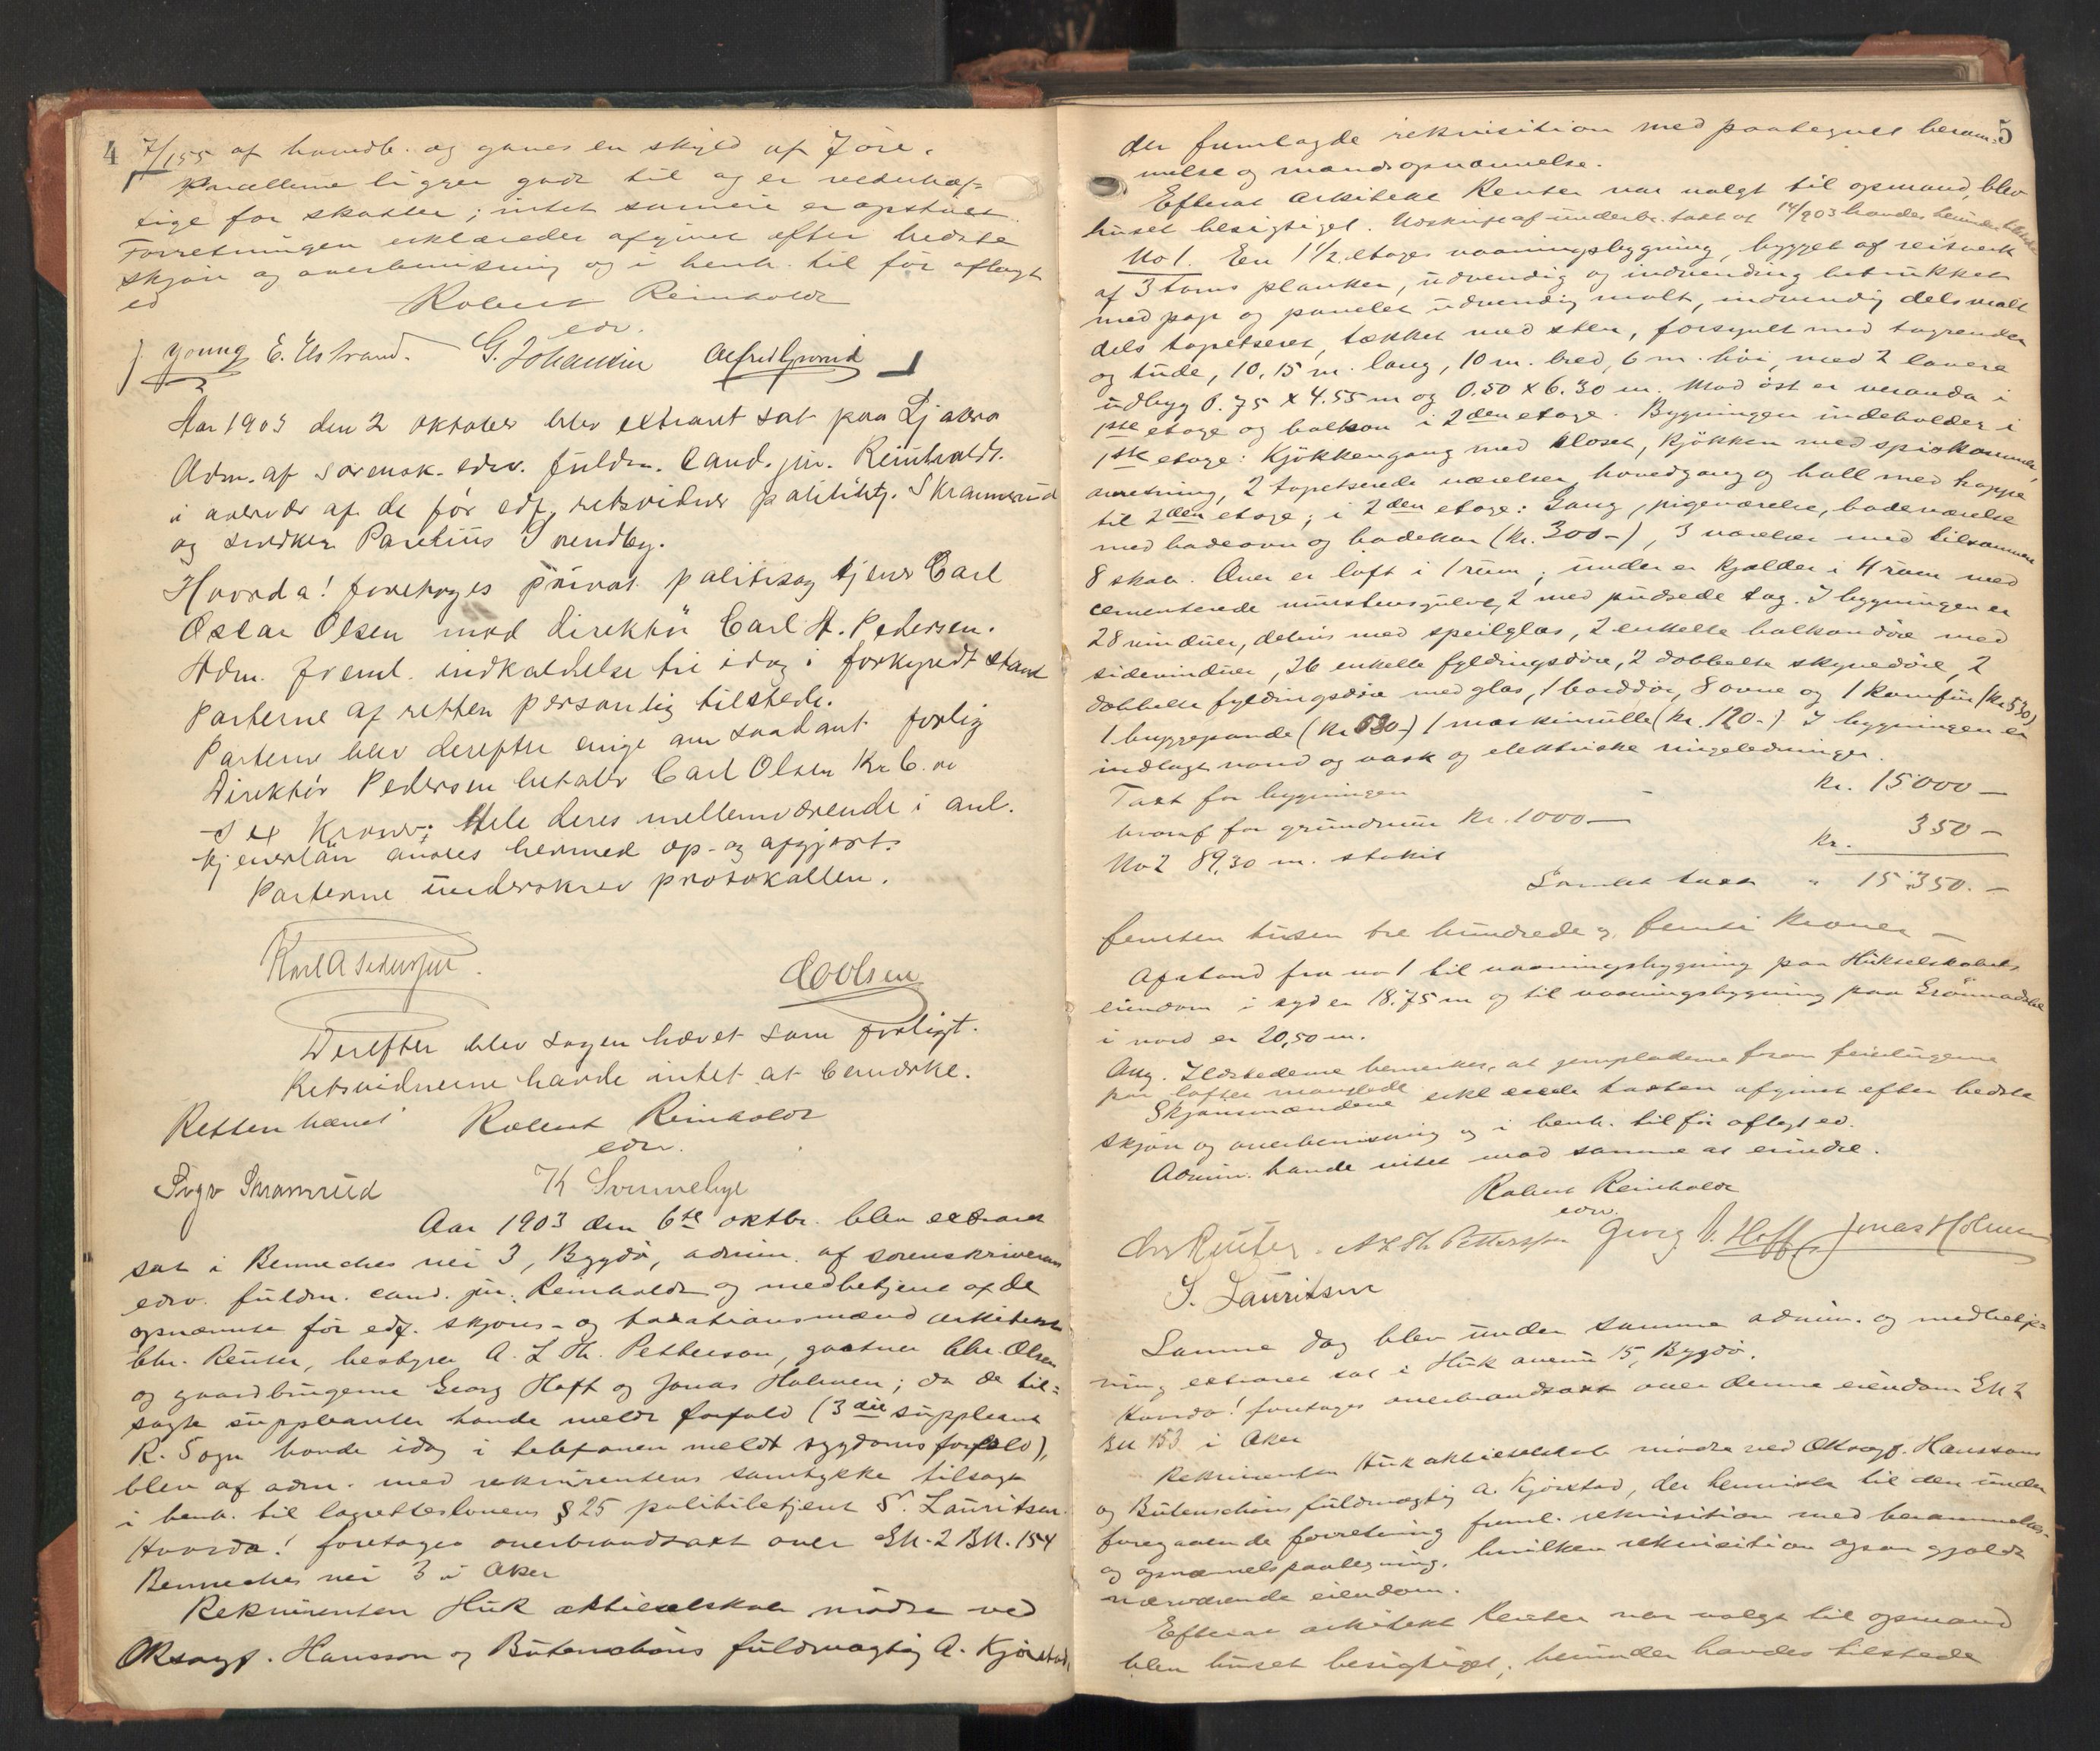 4
7/155 af hovedb. og gaves en skyld af 7 øre.
Parcellerne ligger godt til og er rederhæf=
tige for skatter; intet sameie er opstaaet.
Forretningen erklæredes afgivet efter bedste
skjøn og overbevisning og i henh. til før aflagt
ed
Robert Reinholdt
edv.
J. Young E. Elstrand. G. Johansen
Aar 1903 den 2 oktober blev extraret sat paa Ljabro
Adm. af sorensk. edsv. fuldm. Cand. jur. Reinholdt.
i overvær af de før edf. retsvidner politibtj. Skramrud
og snedker Paulius Svendby.
Hvorda! foretoges privat politisag tjener Carl
Oscar Olsen mod direktør Carl A. Pedersen.
Adm. freml. indkaldelse til idag i forkyndt stand
Parterne af retten personlig tilstede.
Parterne blev derefter enige om saadant forlig
Direktør Pedersen betaler Carl Olsen Kr. 6.00
Sex Kroner; Hele deres mellemværende i anl.
tjenerløn ansees hermed op- og afgjort.
Parterne underskrev protokollen.
Karl A Pederssen. COOlsen
Derefter blev sagen hævet som forligt.
Retsvidnerne havde intet at bemærke.
Retten hævet Robert Reinholdt
edv.
Sigv Skramrud K Svennebye
Aar 1903 den 6te oktbr. blev extraret
sat i Benneches vei 3, Bygdø, admin. af sorenskriverens
edsv. fuldm. cand. jur. Reinholdt og medbetjent af de
opnævnte før edf. skjøns- og taxationsmænd arkitekt
Chr. Reuter, bestyrer A. L. Th. Petterson, gartner Chr. Olsen
og gaardbrugerne Georg Hoff og Jonas Holmen; da de til=
sagte suppleanter havde meldt forfald (3die suppleant
R. Sogn havde idag i telefonen meldt sygdomsforfald),
blev af adm. med rekvirentens samtykke tilsagt
i henh. til lagretteslovens § 25 politibetjent S. Lauritsen.
Hvorda! foretoges overbrandtaxt over Gn. 2 Bn. 154
Benneches vei 3 i Aker
Rekvirenten Huk aktieselskab mødte ved
ORsagf. Hansson og Butenschøns fuldmægtig A. Kjørstad,
5
der fremlagde rekvisition med paategnet beram=
melse og mandsopnævnelse.
Efterat arkitekt Reuter var valgt til opmand, blev
huset besigtiget. Udskrift af underbr. taxt af 14/9 03 havdes herunder tilstede
No 1. En 1 1/2 etages vaaningsbygning, bygget af reisverk
af 3 toms planker, udvendig og indvendig betrukket
med pap og panelet udvendig malt, indvendig dels malt
dels tapetseret, tækket med sten, forsynet med tagrender
og tude, 10,15 m. lang, 10 m. bred, 6 m. høi, med 2 lavere
udbyg 0.75 x 4.55 m og 0.50 x 6.30 m. Mod øst er veranda i
1ste etage og balkon i 2den etage. Bygningen indeholder i
1ste etage: Kjøkkengang med kloset, kjøkken med spiskammer,
anretning, 2 tapetserede værelser, hovedgang og hall med trappe
til 2den etage; i 2den etage: Gang, pigeværelse, badeværelse
med badeovn og badekar (kr. 300-), 3 værelser med tilsammen
8 skab. Over er loft i 1 rum; under er kjælder i 4 rum med
cementerede murstensgulve, 2 med pudsede tag. I bygningen er
28 vinduer, delvis med speilglas, 2 enkelte balkondøre med
sidevinduer, 26 enkelte fyldingsdøre, 2 dobbelte skyvedøre, 2
dobbelte fyldingsdøre med glas, 1 borddør, 8 ovne og 1 komfur (kr. 530)
1 bryggepande (kr 50-) 1 maskinrulle (kr. 120-) I bygningen er
indlagt vand og vask og elektriske ringeledninger.
Taxt for bygningen kr. 15000 -
hvoraf for grundmur kr. 1000 -
No 2 89,30 m. stakit kr. 350 -
Samlet taxt " 15350. -
femten tusen tre hundrede og femti kroner -
Afstand fra no 1 til vaaningsbygning paa Hukselskabets
eiendom i syd er 18.75 m og til vaaningsbygning paa
i nord er 20,50 m.
Ang. Ildstederne bemerkes, at jernpladerne foran feielugerne
paa loftet manglede
Skjønsmændene erklærede taxten afgivet efter bedste
skjøn og overbevisning og i henh. til før aflagt ed.
Admin. havde intet mod samme at erindre.
Robert Reinholdt
edv.
Chr Reuter. A L Th. Pettersson Georg A. Hoff Jonas Holmen
S. Lauritsen
Samme dag blev under samme admin. og medbetje=
ning extraret sat i Huk avenue 15, Bygdø.
Hvorda! foretoges overbrandtaxt over denne eiendom Gn 2
Bn 153 i Aker
Rekvirenten Huk aktieselskab mødte ved ORsagf. Hanssons
og Butenschøns fuldmægtig A. Kjørstad, der henviste til den under
foregaaende forretning freml. rekvisition med berammelses-
og opnævnelsespaategning, hvilken rekvisition ogsaa gjaldt
nærværende eiendom.
Efterat arkitekt Reuter var valgt til opmand
blev huset besigtiget; herunder havdes tilstede